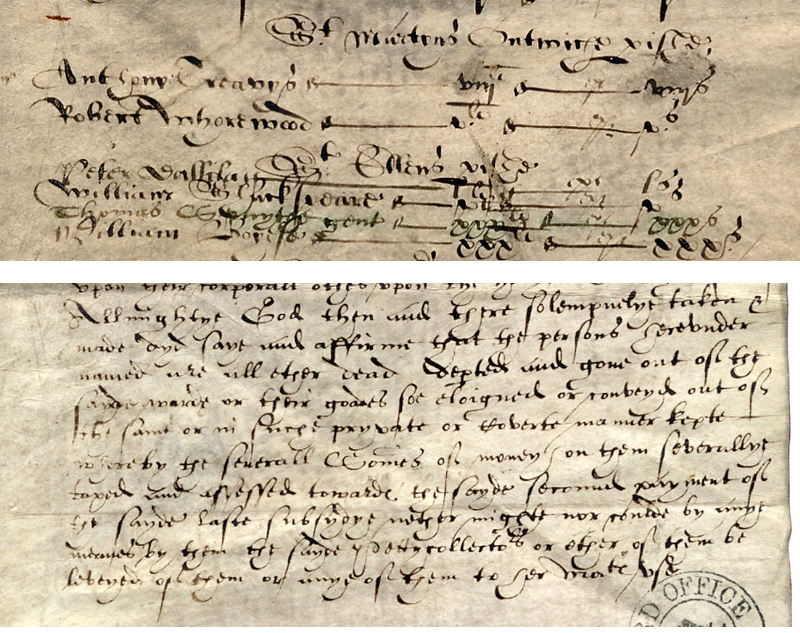 St Martens Outwiche pishe
Anthony Treavys viij li viij s
Robert Awhorewood v li v s
St Ellens pishe
Peter l s
William Shackspeare v li v s
Thomas Smythe gent xxx li xxx s
William Boyese xxx li xxx s
upon their corporall othes upon the
Allmightye God then and there solempnelye taken &
made dyd saye and affirme that the persons hereunder
named are all ether dead depted and gone out of the
sayde warde or their goodes soe eloigned or conveyd out of
the same or in suche pryvate or coverte manner kepte
whereby the severall Somes of money on them severallye
taxed and assessed towards the sayde second payment of
the sayde laste subsydye nether mighte nor coulde by anye
meanes by them the sayde pettycollectors or other of them be
levyed of them or anye of them to her maties vse
RD OFFICE